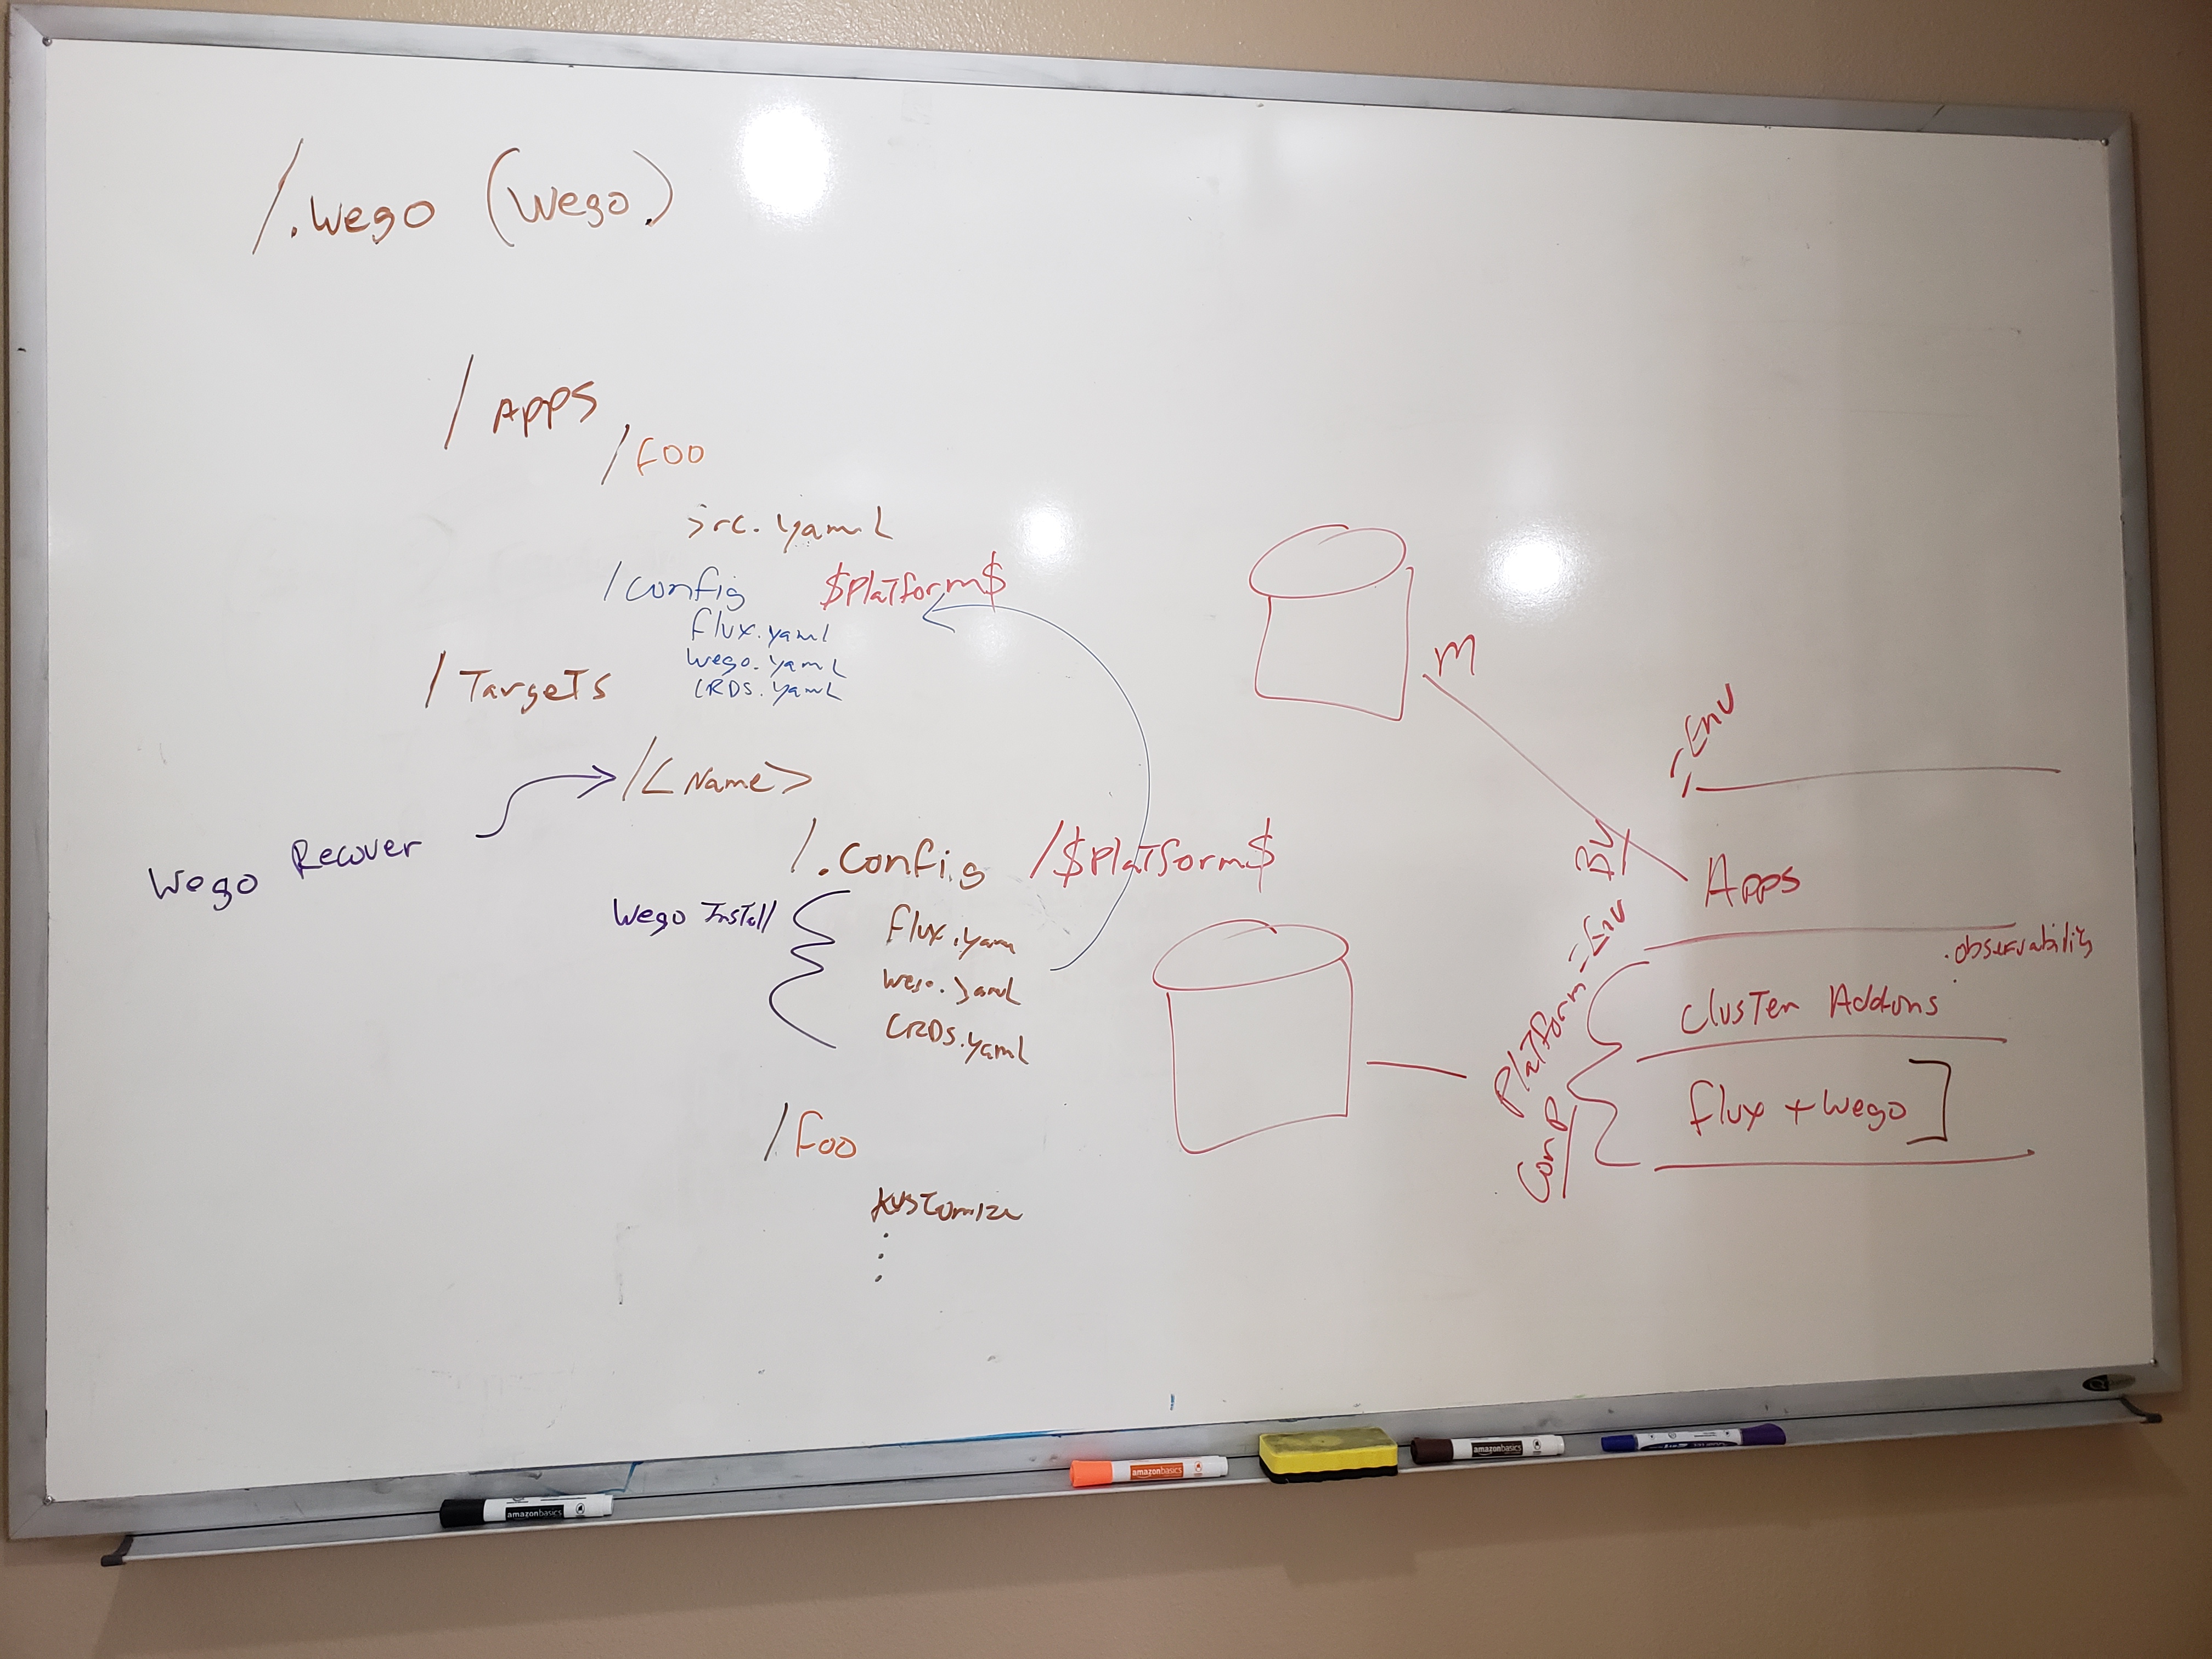 /.wego (wego.)
/ Apps
/foo
src.yaml
/config $Platform$
flux.yaml
wego.yaml
CRDS.yaml
/ Targets
/< Name >
Wego Recover
/.config /$Platform$
Wego Install
flux.yam
wego.yaml
CRDS.yaml
/foo
kustomize
M
-Env
BU
Apps
.observability
Platform-Env
Cluster Addons
CorP
flux + wego
amazonbasics
amazonbasics
amazonbasics